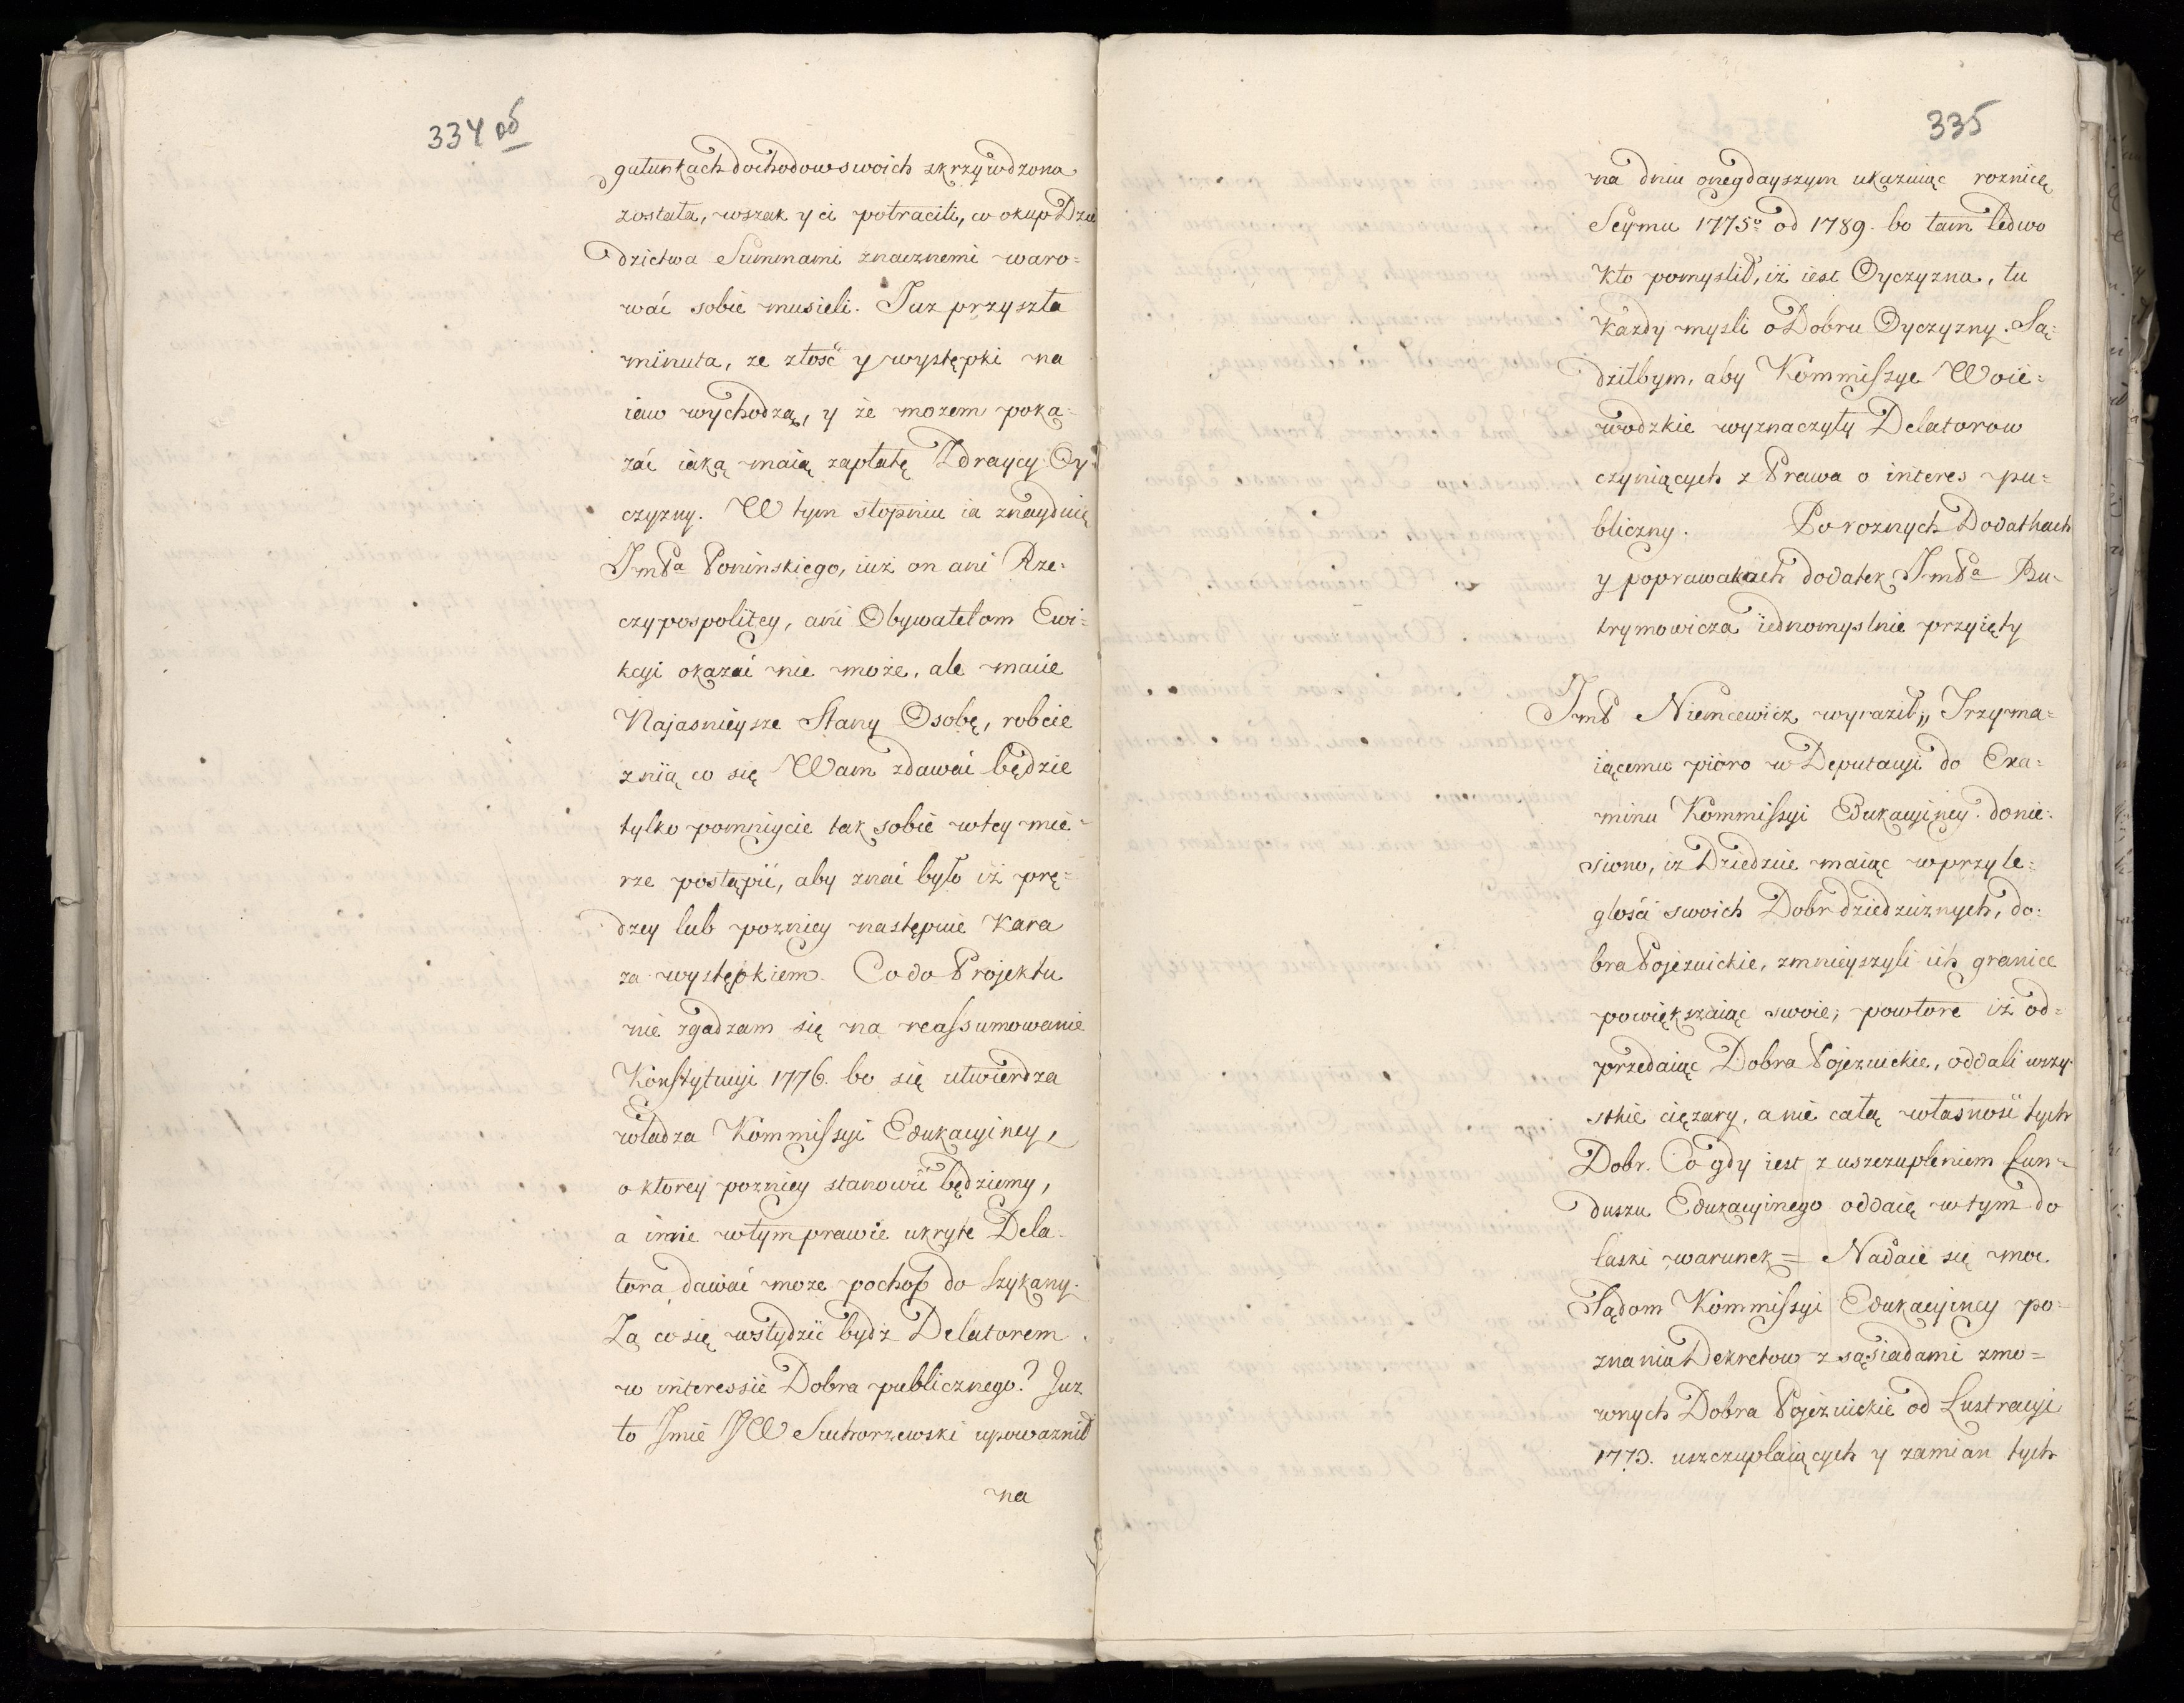 334 об
gatunkach dochodow swoich skrzywdzona
została, wszak y ci potracili, co okup Dzie
dzictwa Summami znacznemi waro=
wać sobie musieli. Juz przyszła
minuta, ze złość y występki na
iaw wychodzą, y że mozem poka=
zać iaką maią zapłatę Zdraycy Oy=
czyzny. W tym stopniu ia znayduię
JmPa Ponińskiego, iuż on ani Rze=
czypospolitey, ani Obywatelom Ewi=
kcyi okazać nie może, ale macie
Najasnieysze Stany Osobę, robcie
z nią co się Wam zdawać będzie
tylko pomniycie tak sobie w tey mie=
rze postąpić, aby znać było iż prę=
dzey lub pozniey następuie Kara
za występkiem. Co do Projektu
nie zgadzam się na reassumowanie
Konstytucyi 1776. bo się utwierdza
władza Kommissyi Edukacyiney,
o ktorey pozniey stanowić będziemy,
a imie w tym prawie ukryte Dela=
tora dawać moze pochop do Szykany.
Za co się wstydzić bydź Delatorem
w interessie Dobra publicznego? Juz
to Jmie JW Suchorzewski upowaznił
na
335
na dniu onegdayszym ukazuiąc roznicę
Seymu 1775o od 1789. bo tam ledwo
kto pomyslił, iż iest Oyczyzna, tu
każdy mysli o Dobru Oyczyzny. Są=
dziłbym, aby Kommissye Woie=
wodzkie wyznaczyły Delatorow
czyniących z Prawa o interes pu=
bliczny. Po roznych Dodatkach
y poprawakach dodatek JmPa Bu=
trymowicza iednomyslnie przyięty
JmP Niemcewicz wyraził„ Trzyma=
iącemu pióro w Deputacyi do Exa=
minu Kommissyi Edukacyiney donie=
siono, iż Dziedzice maiąc w przyle=
głości swoich Dobr dziedzicznych, do=
bra Pojezuickie, zmnieyszyli ich granice
powiększaiąc swoie; powtore iż od=
przedaiąc Dobra Pojezuickie, oddali wszy=
stkie ciężary, a nie całą własność tych
Dobr. Co gdy iest z uszczupleniem fun=
duszu Edukacyinego oddaię w tym do
laski warunek = Nadaie się moc
Sądom Kommissyi Edukacyiney po=
znania Dekretow z sąsiadami zmo=
wnych Dobra Pojezuickie od Lustracyi
1773. uszczuplaiących y zamian tych